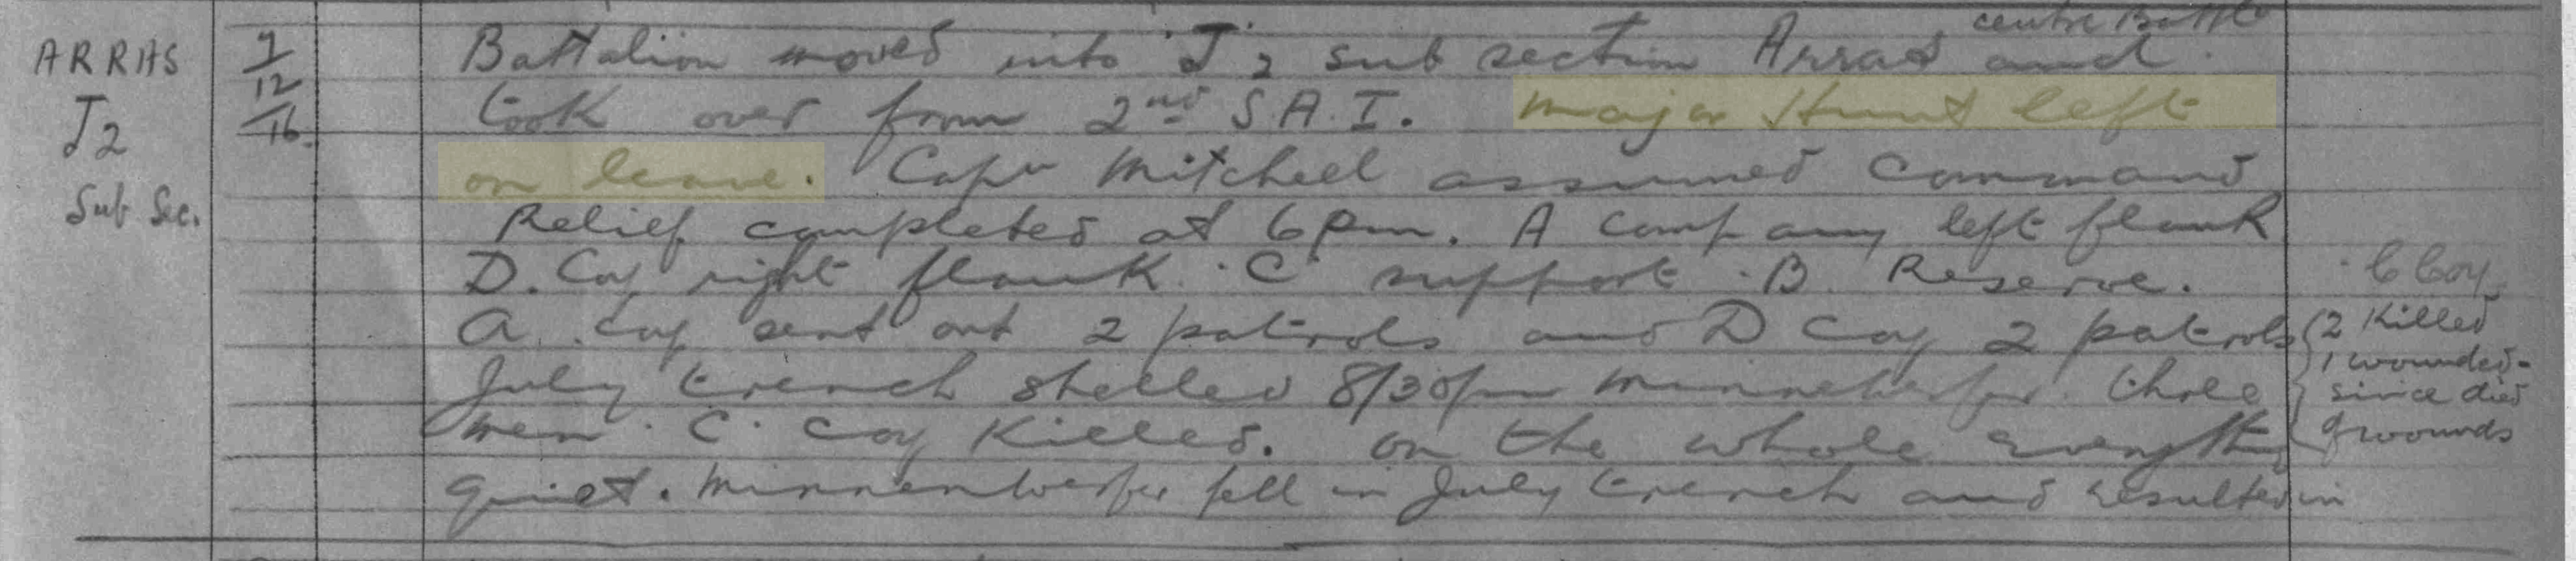 ARRAS
J2
Sub Sec.
7/12/16.
centre Battle
Battalion moved into J 2 sub section Arras and
took over from 2nd S.A.I. Major Hunt left
on leave. Capt Mitchell assumed command
Relief completed at 6 pm. A company left flank
D. Coy right flank. C support. B. Reserve.
A. Coy sent out 2 patrols and D Coy 2 patrols
July trench shelled 8/30 pm three
men. C. Coy Killed. on the whole everything
quiet. Minnenwerfer fell in July trench and resulted in
C Coy.
2 Killed
1 wounded -
since died
of wounds